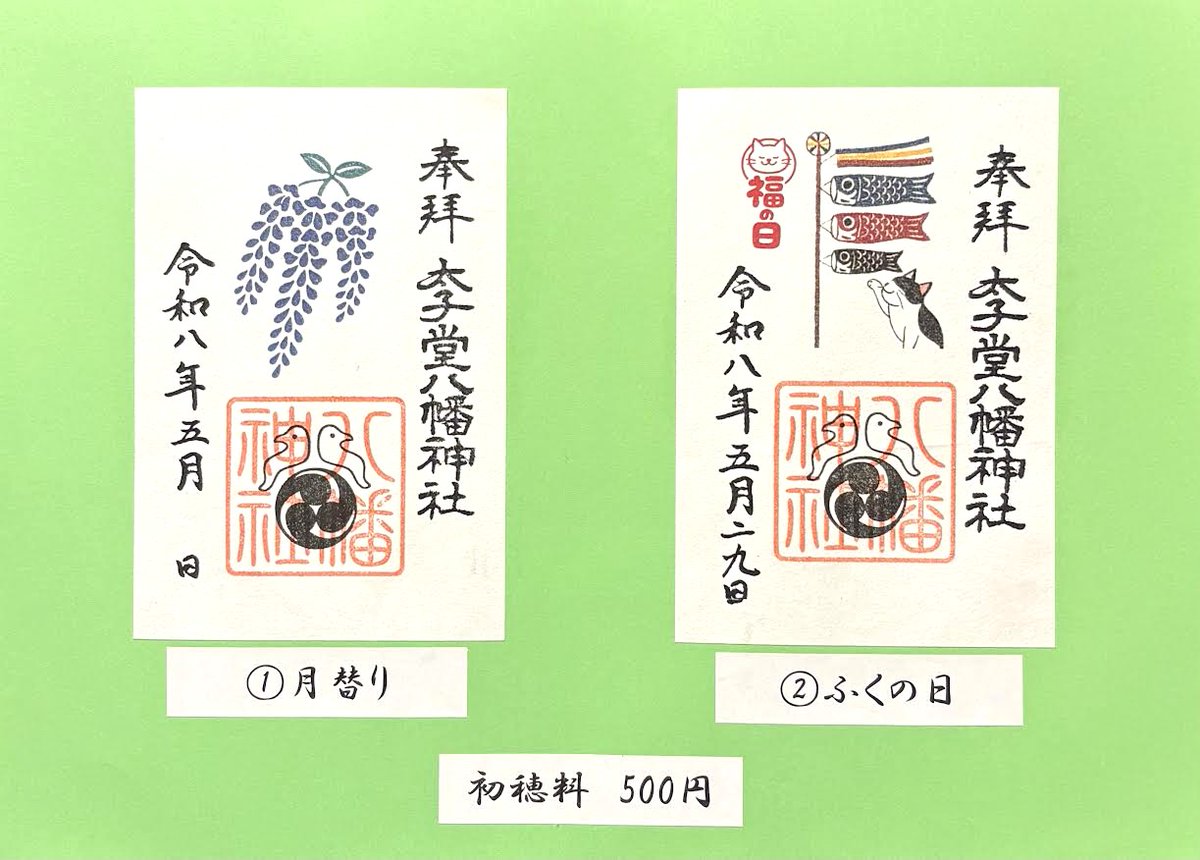 奉拝
太子堂八幡神社
令和八年五月 日
八幡
神社
①月替り
奉拝
太子堂八幡神社
福の日
令和八年五月二九日
八幡
神社
②ふくの日
初穂料 500円